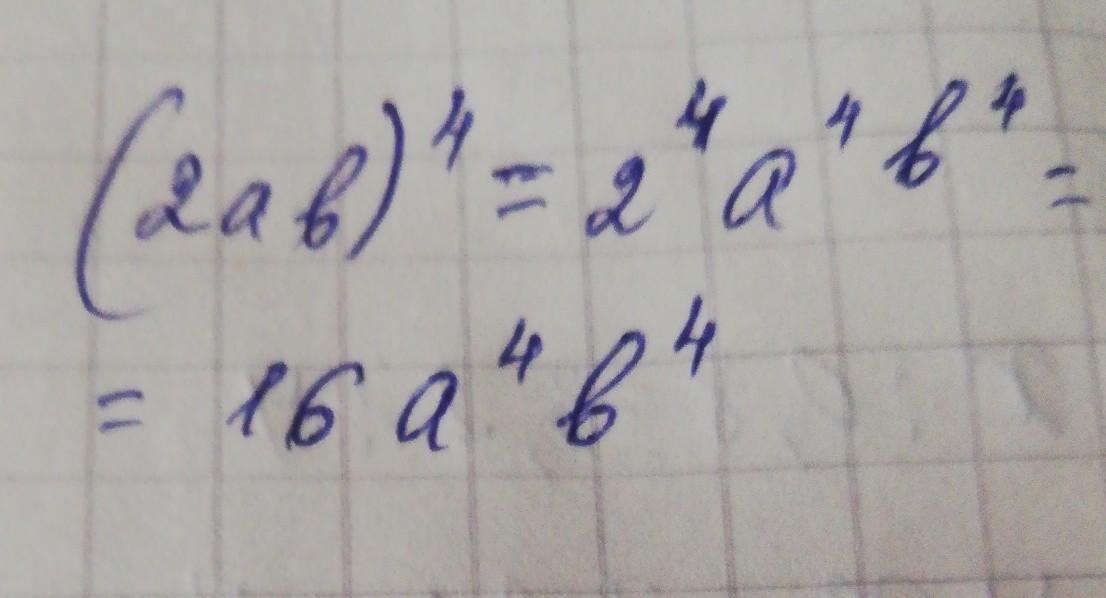 (2ab)⁴ = 2⁴a⁴b⁴ =
= 16a⁴b⁴